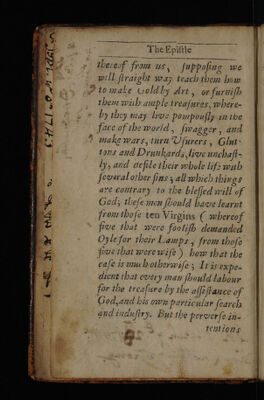 The Epistle
thereof from us, supposing we
will straight way teach them how
to make Gold by Art, or furnish
them with ample treasures, where-
by they may live pompously in the
face of the world, swagger, and
make wars, turn Usurers, Glut-
tons and Drunkards, live unchast-
ly, and defile their whole life with
several other sins; all which things
are contrary to the blessed will of
God; these men should have learnt
from those ten Virgins (whereof
five that were foolish demanded
Oyle for their Lamps, from those
five that were wise) how that the
case is much otherwise; It is expe-
dient that every man should labour
for the treasure by the assistance of
God, and his own particular search
and industry. But the perverse in-
tentions